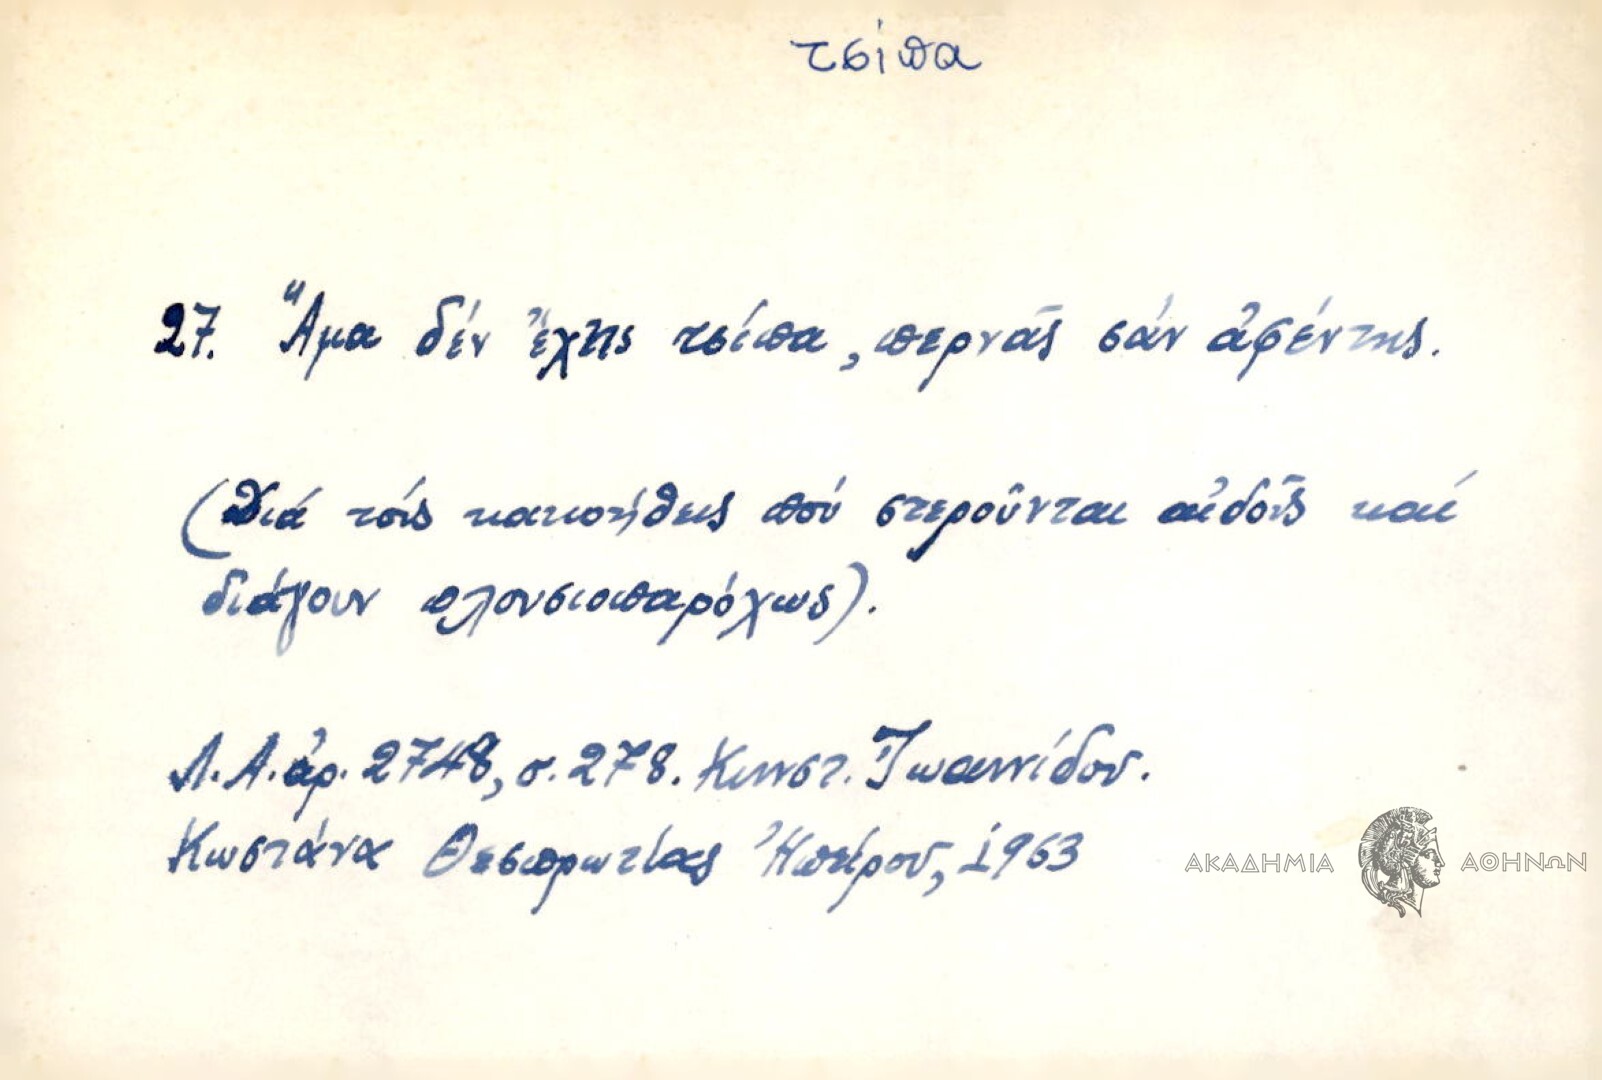 τσίπα
27. Ἅμα δέν ἔχῃς τσίπα, περνᾶς σάν ἀφέντης.
(Διά τούς κακοήθεις πού στεροῦνται αἰδοῦς καί
διάγουν πλουσιοπαρόχως).
Λ.Α. ἀρ. 2748, σ. 278. Κωνστ. Ἰωαννίδου.
Κωστάνα Θεσπρωτίας Ἠπείρου, 1963
ΑΚΑΔΗΜΙΑ ΑΘΗΝΩΝ